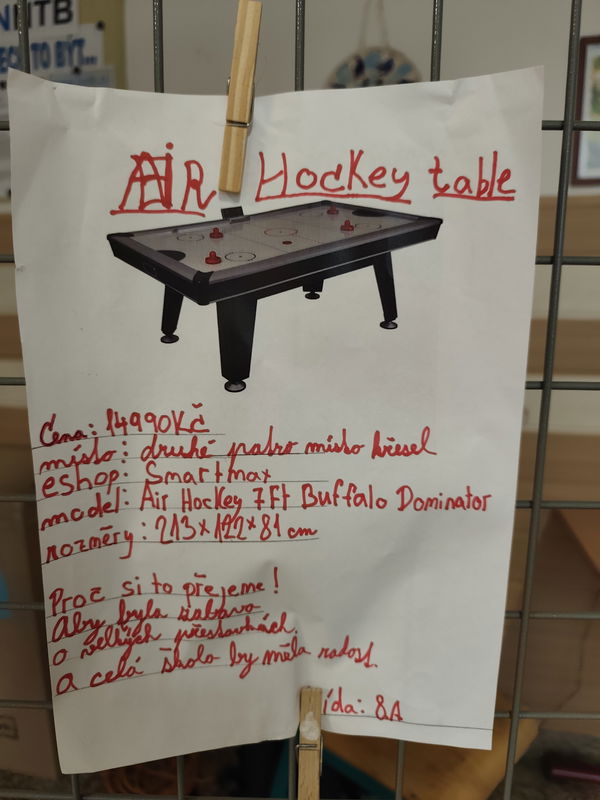 HTB
TO BÝT...
AiR Hockey table
Cena: 14990Kč
místo: druhé patro místo křesel
eshop: Smartmax
model: Air Hockey 7Ft Buffalo Dominator
rozměry: 213×122×81 cm
Proč si to přejeme!
Aby byla zabava
o velkých přestávkách.
a celá škola by měla radost.
ída: 8A